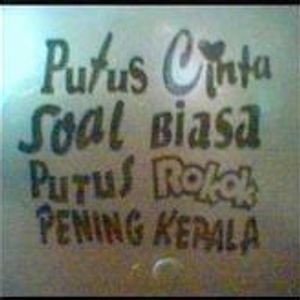 Putus Cinta
Soal Biasa
Putus Rokok
Pening Kepala